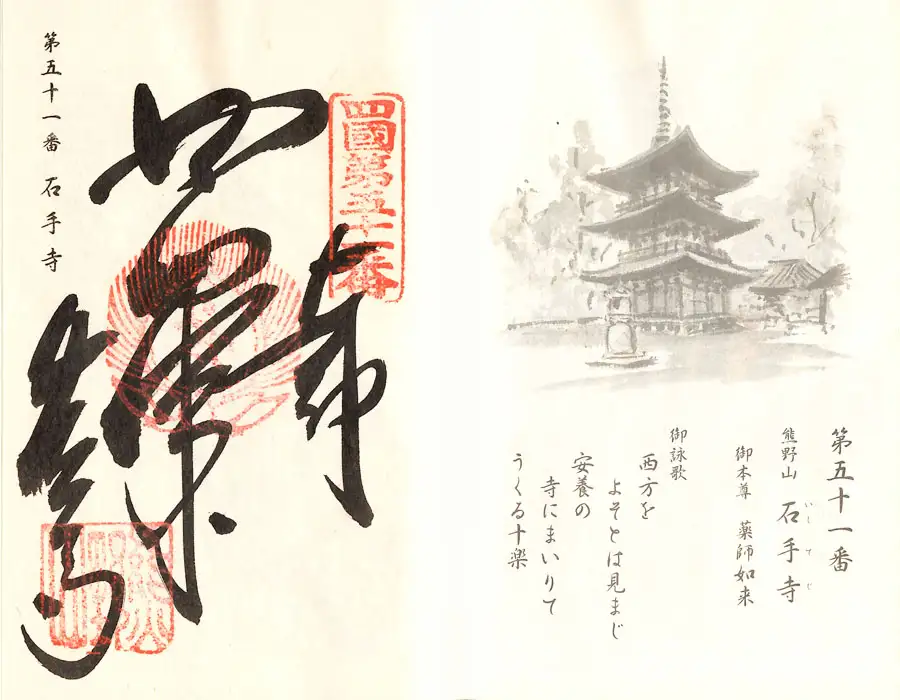 第五十一番
熊野山 石手寺
いしてじ
御本尊 薬師如来
御詠歌
西方を
よそとは見まじ
安養の
寺にまいりて
うくる十楽
四國第五十一番
第五十一番 石手寺